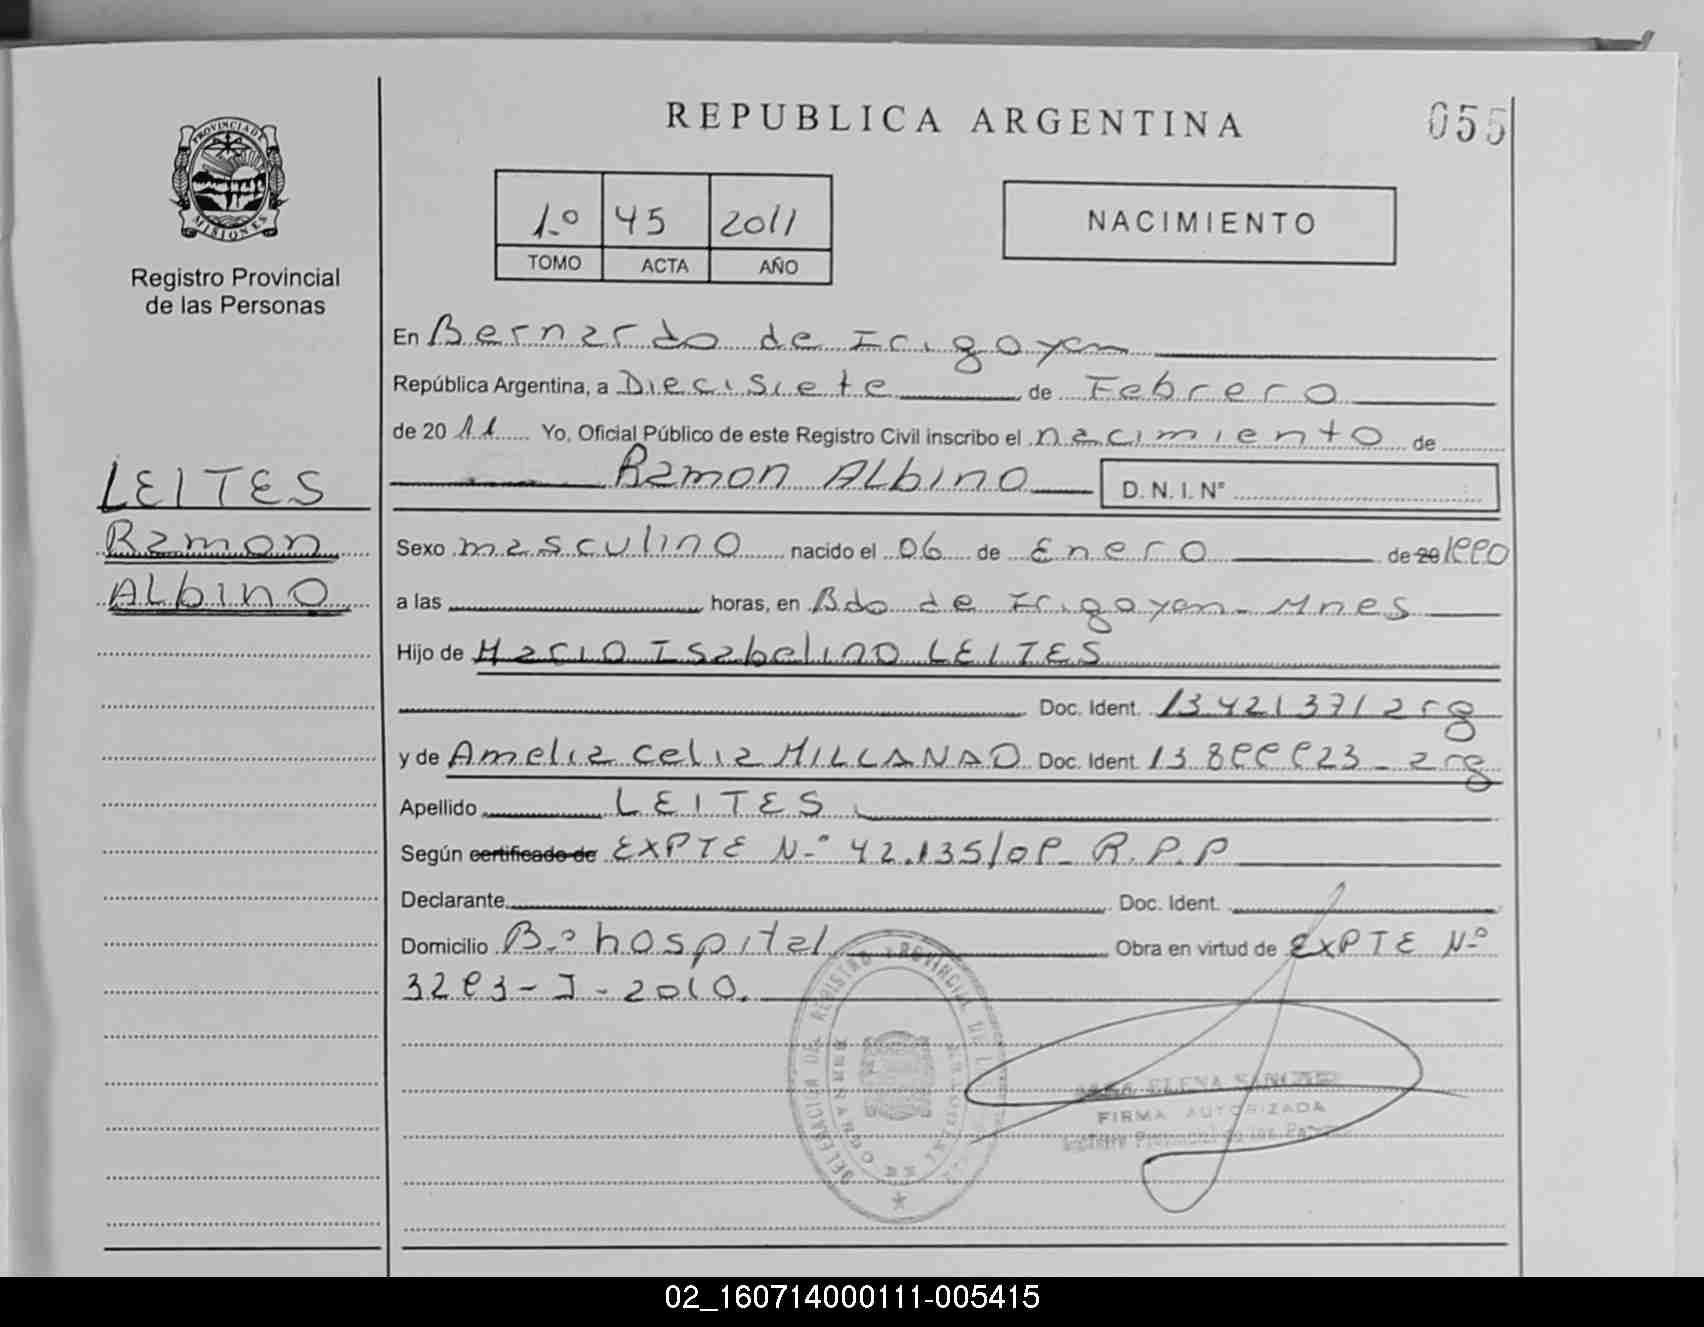 REPUBLICA ARGENTINA
055
PROVINCIA DE MISIONES
Registro Provincial
de las Personas
1º 45 2011
TOMO ACTA AÑO
NACIMIENTO
En Bernardo de Irigoyen
República Argentina, a Diecisiete de Febrero
de 20 11 Yo, Oficial Público de este Registro Civil inscribo el nacimiento de
Ramon Albino D. N. I. Nº
LEITES
Ramon
Albino
Sexo masculino nacido el 06 de Enero de 20 1990
a las horas, en Bdo de Irigoyen - Mnes
Hijo de Mario Isabelino LEITES
Doc. Ident. 13 421 371 arg
y de Amelia Celia MILLANAO Doc. Ident. 13 899 923 - arg
Apellido LEITES
Según certificado de EXPTE N.º 42.135/09 - R.P.P
Declarante Doc. Ident.
Domicilio B.º hospital Obra en virtud de EXPTE N.º
3293 - I - 2010.
DELEGACION DE REGISTRO PROVINCIAL DE
BERNARDO DE
ELENA
FIRMA AUTORIZADA
Registro Provincial de las Personas
02_160714000111-005415